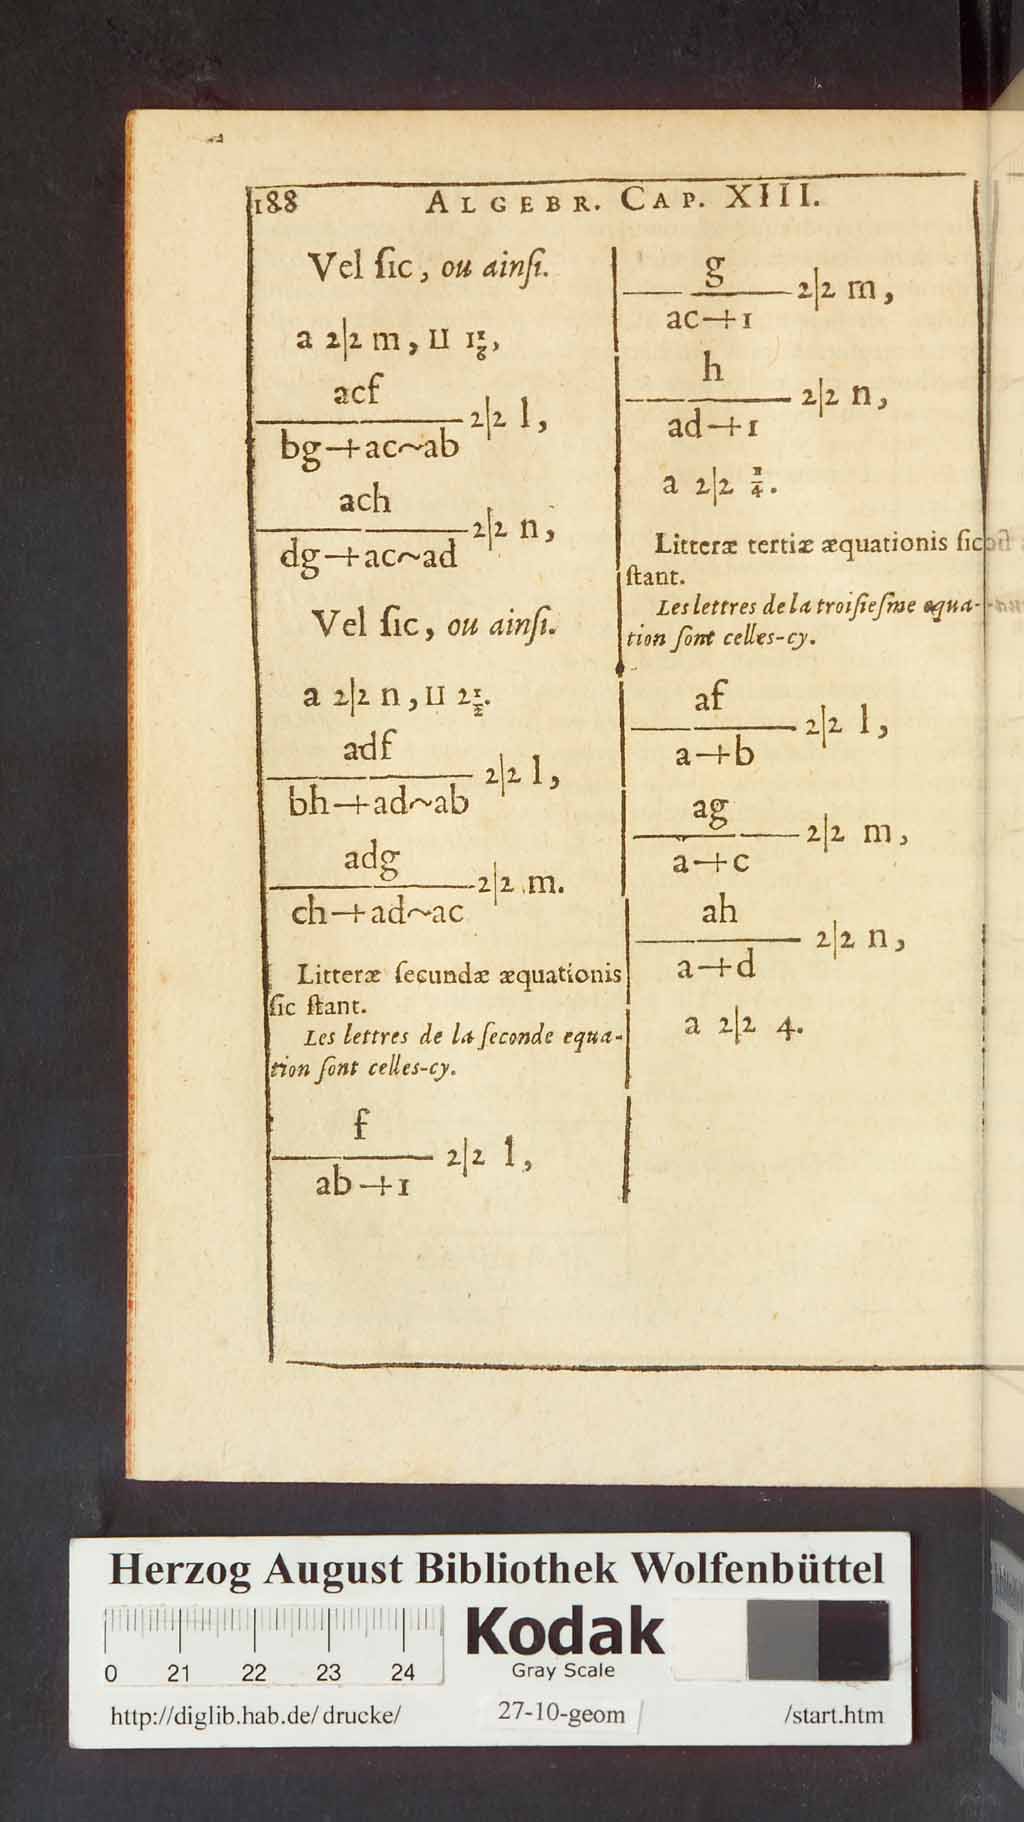 188 ALGEBR. CAP. XIII.
Vel ſic, ou ainſi.
a 2|2 m, II 1 1/6,
acf
2|2 l,
bg+ac~ab
ach
2|2 n,
dg+ac~ad
Vel ſic, ou ainſi.
a 2|2 n, II 2 1/2.
adf
2|2 l,
bh+ad~ab
adg
2|2 m.
ch+ad~ac
Litteræ ſecundæ æquationis
ſic ſtant.
Les lettres de la ſeconde equa-
tion ſont celles-cy.
f
2|2 l,
ab+1
g
2|2 m,
ac+1
h
2|2 n,
ad+1
a 2|2 1/4.
Litteræ tertiæ æquationis ſic
ſtant.
Les lettres de la troiſieſme equa-
tion ſont celles-cy.
af
2|2 l,
a+b
ag
2|2 m,
a+c
ah
2|2 n,
a+d
a 2|2 4.
Herzog August Bibliothek Wolfenbüttel
Kodak
Gray Scale
0 21 22 23 24
http://diglib.hab.de/drucke/ 27-10-geom /start.htm